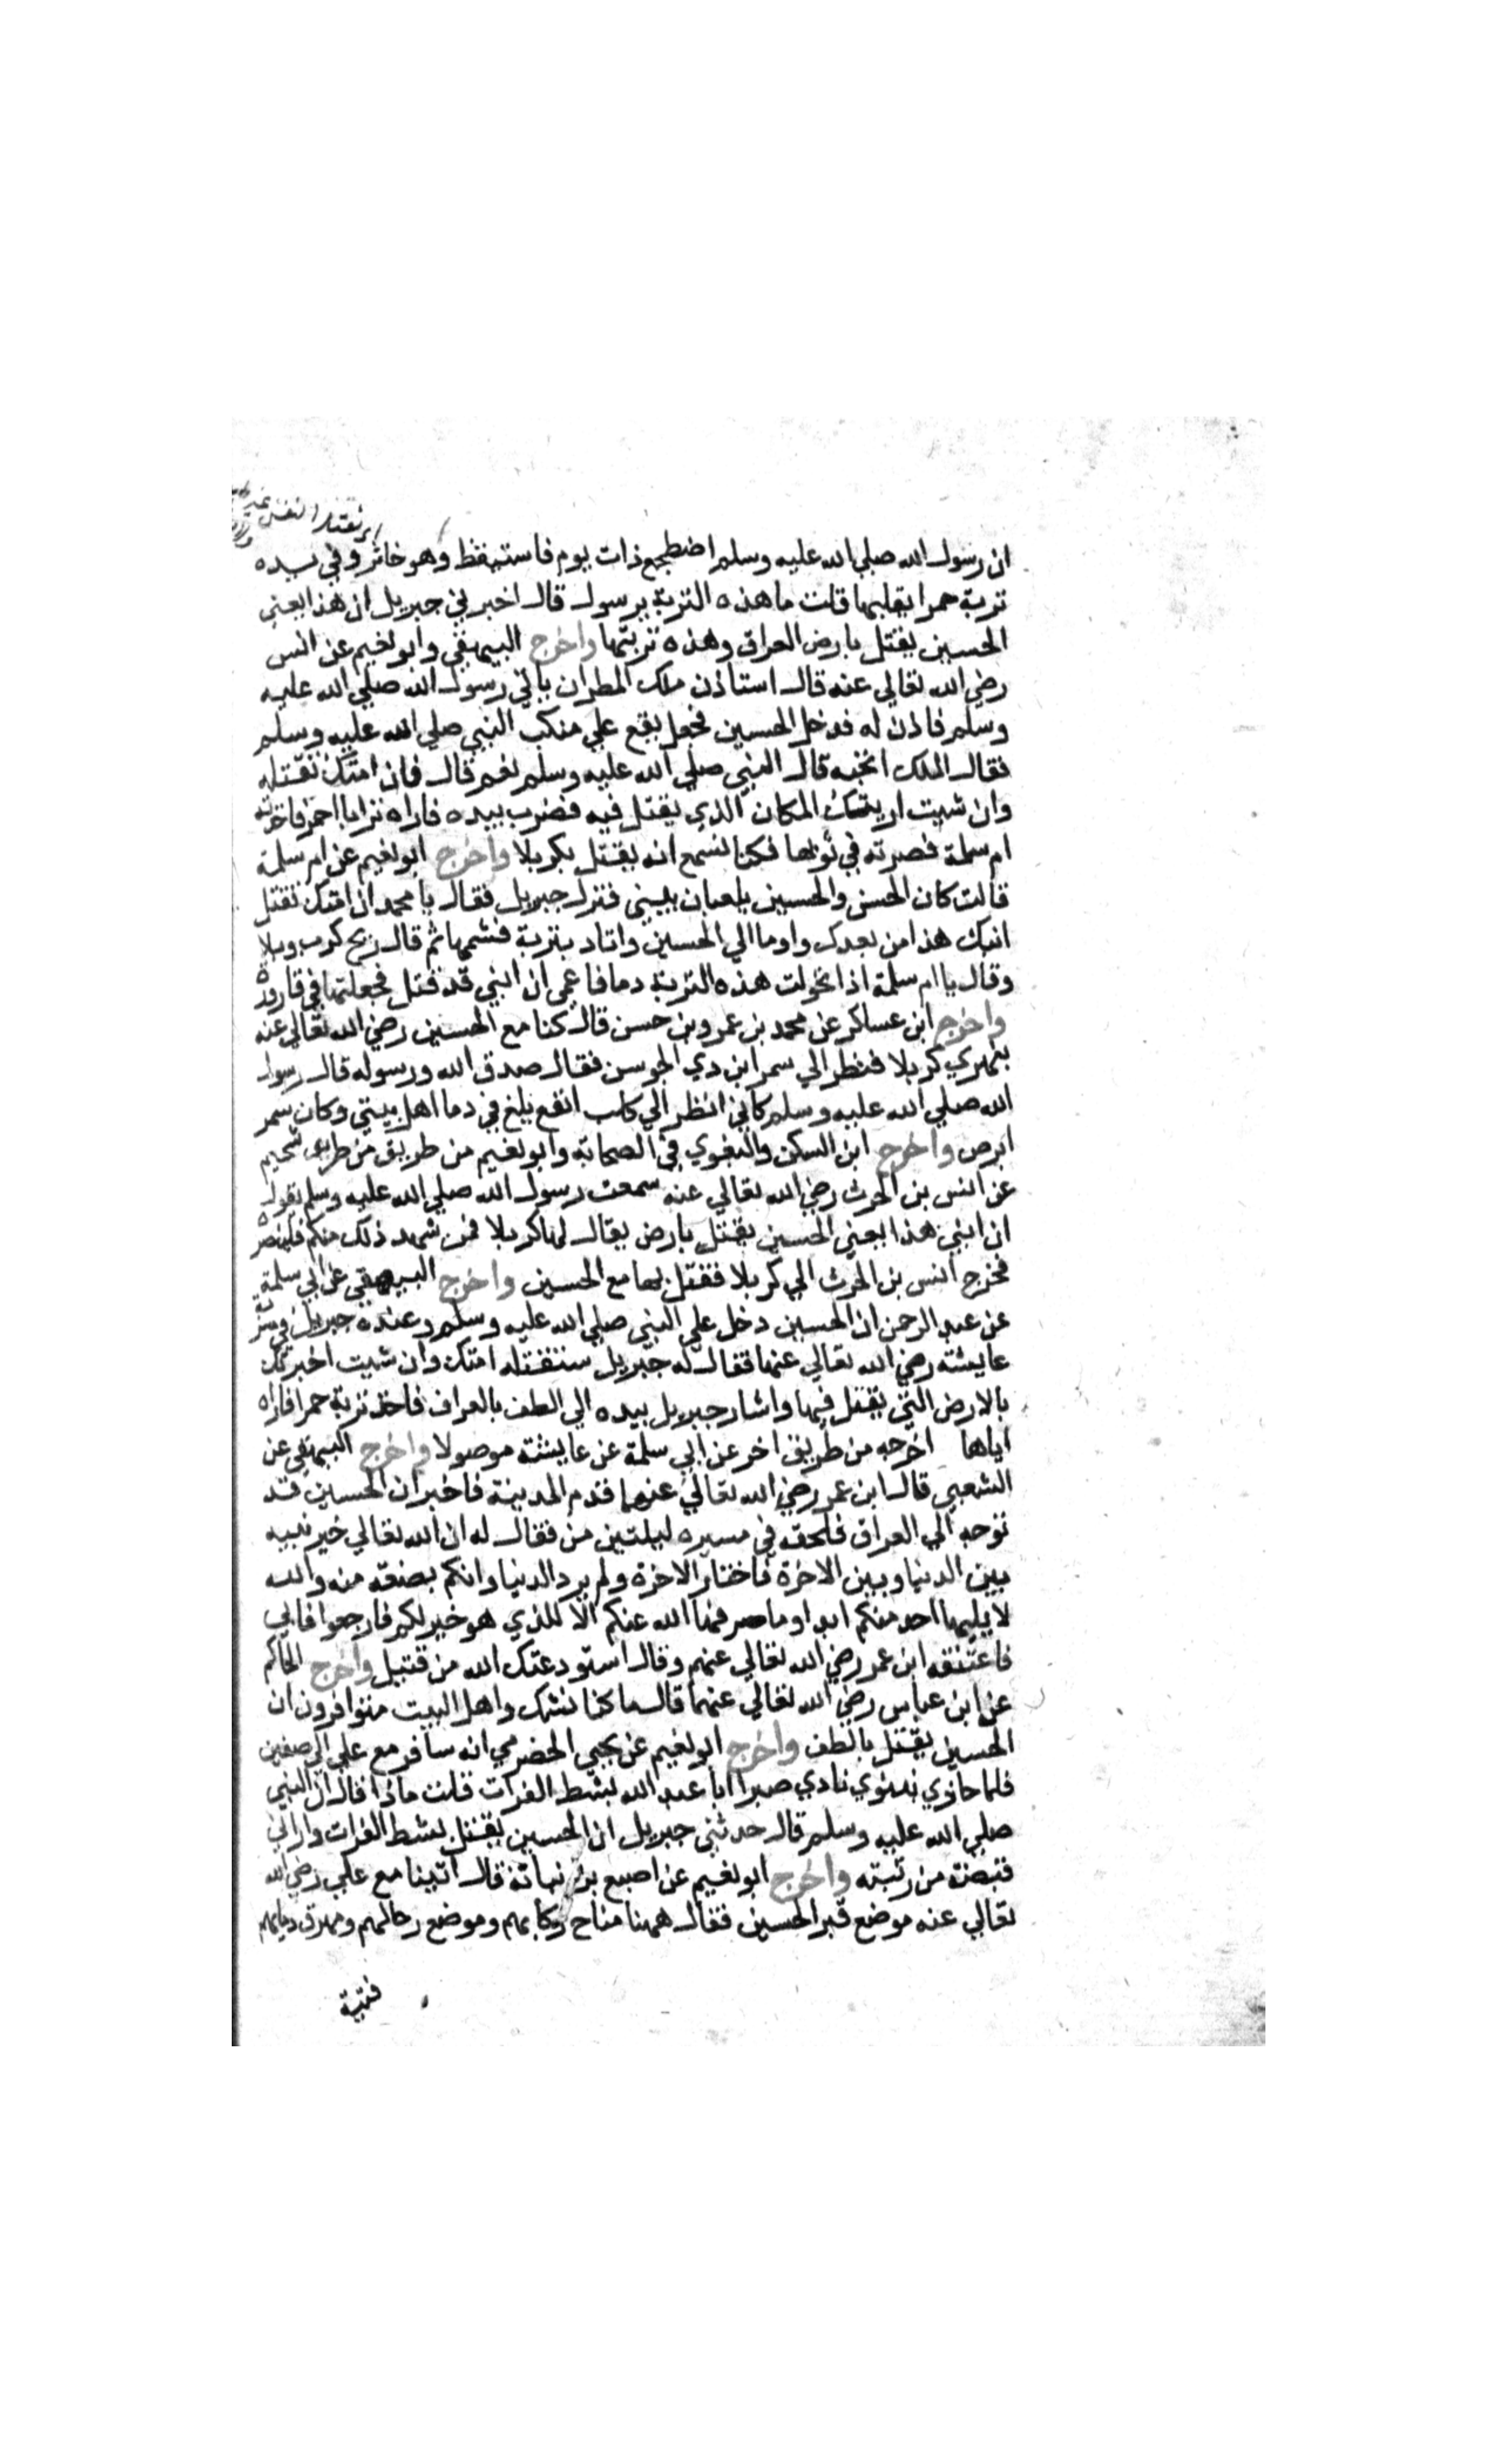 ان رسول الله صلي الله عليه وسلم اضطجع ذات يوم فاستيقظ وهو خاثر وفي يده
تربة حمرا يقلبها قلت ما هذه التربة يرسول قال اخبرني جبريل ان هذا يعني
الحسين يقتل بارض العراق وهذه تربتها واخرج البيهقي وابو نعيم عن انس
رضي الله تعالي عنه قال استاذن ملك المطر ان ياتي رسول الله صلي الله عليه
وسلم فاذن له فدخل الحسين فجعل يقع علي منكب النبي صلي الله عليه وسلم
فقال الملك اتحبه قال النبي صلي الله عليه وسلم نعم قال فان امتك تقتله
وان شيت اريتك المكان الذي يقتل فيه فضرب بيده فاراه ترابا احمر فاخذته
ام سلمة فصرته في ثوبها فكنا نسمع انه يقتل بكربلا واخرج ابو نعيم عن ام سلمة
قالت كان الحسن والحسين يلعبان ببيتي فنزل جبريل فقال يا محمد ان امتك تقتل
ابنك هذا من بعدك واوما الي الحسين واتاه بتربة فشمها ثم قال ريح كرب وبلا
وقال يا ام سلمة اذا تحولت هذه التربة دما فاعمي ان ابني قد قتل فجعلتها في قارورة
واخرج ابن عساكر عن محمد بن عمرو بن حسن قال كنا مع الحسين رضي الله تعالي عنه
بنهري كربلا فنظر الي سمر ابن دي الجوسن فقال صدق الله ورسوله قال رسول
الله صلي الله عليه وسلم كاني انظر الي كلب ابقع يلغ في دما اهل بيتي وكان سمر
ابرص واخرج ابن السكن والبغوي في الصحابة وابو نعيم من طريق من طريق سحيم
عن انس بن الحرث رضي الله تعالي عنه سمعت رسول الله صلي الله عليه وسلم يقول
ان ابني هذا يعني الحسين يقتل بارض يقال لها كربلا فمن شهد ذلك منكم فلينصره
فخرج انس بن الحرث الي كربلا فقتل بها مع الحسين واخرج البيهقي عن ابي سلمة
عن عبد الرحمن ان الحسين دخل علي النبي صلي الله عليه وسلم وعنده جبريل في مشربة
عايشه رضي الله تعالي عنها فقال له جبريل ستقتله امتك وان شيت اخبرتك
بالارض التي يقتل فيها واشار جبريل بيده الي الطف بالعراف فاخذ تربة حمرا فاراه
اياها اخرجه من طريق اخر عن ابي سلمة عن عايشة موصولا واخرج البيهقي عن
الشعبي قال ابن عمر رضي الله تعالي عنهما قدم المدينة فاخبر ان الحسين قد
توجه الي العراق فلحقه في مسيره ليلتين من فقال له ان الله تعالي خير نبيه
بين الدنيا وبين الاخرة فاختار الاخرة ولم يرد الدنيا وانكم بضعة منه والله
لا يليها احد منكم ابدا وما صرفها الله عنكم الا للذي هو خير لكم فارجعوا فابي
فاعتنقه ابن عمر رضي الله تعالي عنهم وقال استودعتك الله من قتيل واخرج الحاكم
عن ابن عباس رضي الله تعالي عنهما قال ما كنا نشك واهل البيت متوافرون ان
الحسين يقتل بالطف واخرج ابو نعيم عن يحيي الحضرمي انه سافر مع علي الي صفين
فلما حاذي نينوي نادي صبرا ابا عبد الله بشط الفرات قلت ماذا قال ان النبي
صلي الله عليه وسلم قال حدثني جبريل ان الحسين يقتل بشط الفرات واراني
قبضة من رتبته واخرج ابو نعيم عن اصبع بن نباتة قال اتينا مع علي رضي الله
تعالي عنه موضع قبر الحسين فقال ههنا مناخ ركابهم وموضع رحالهم ومهرق دمايهم
فتية